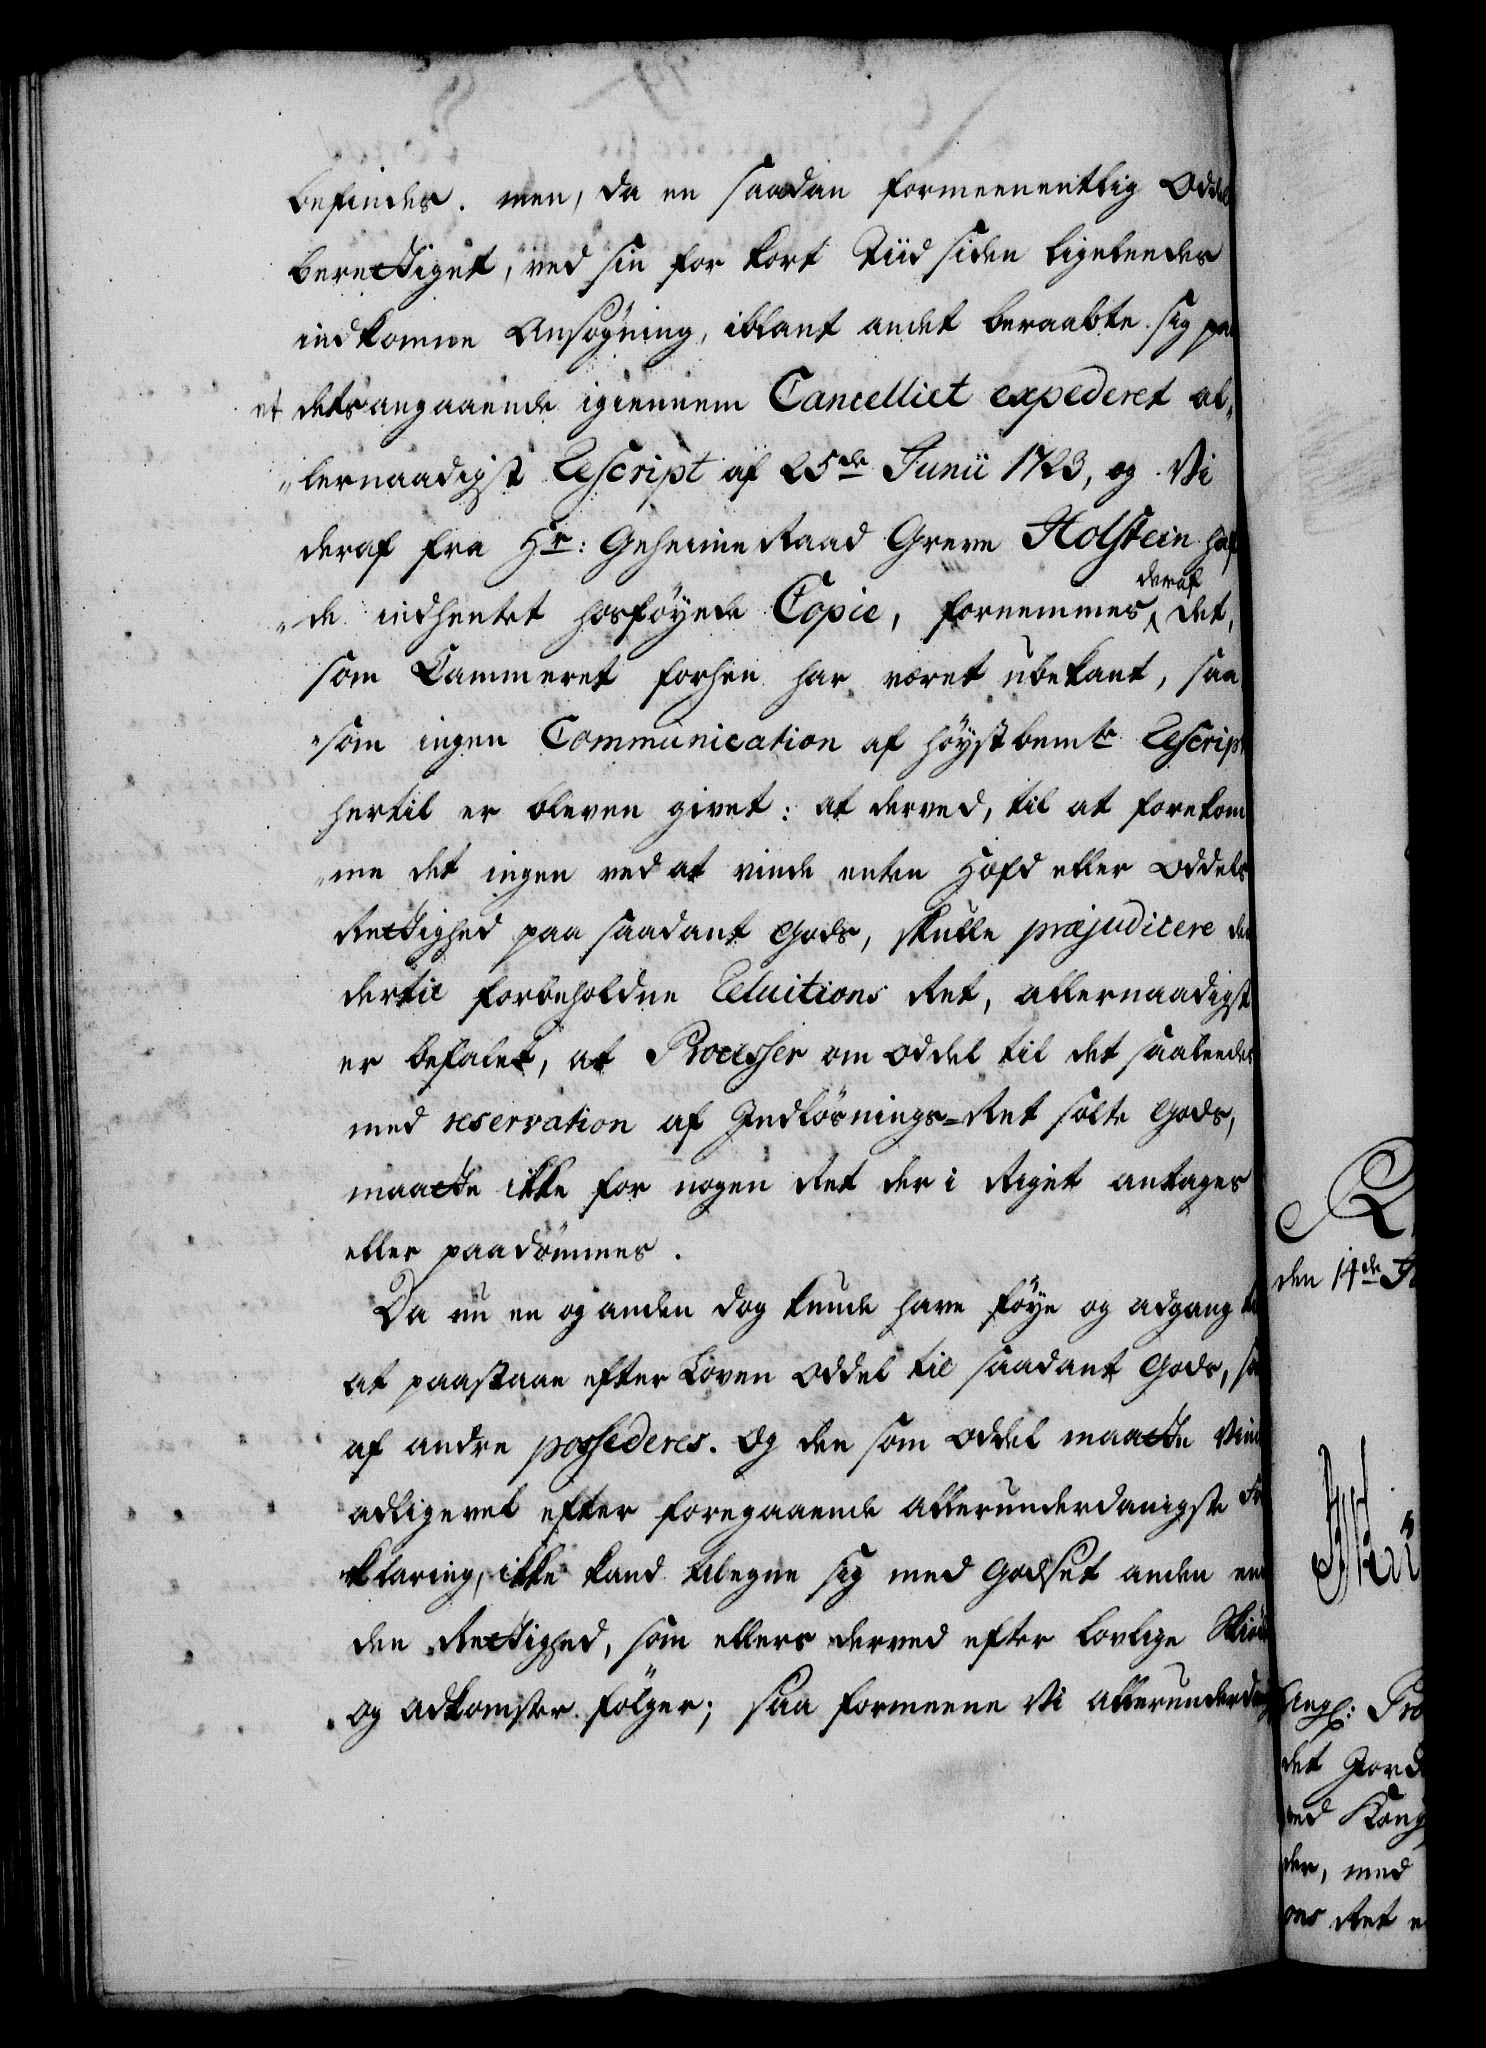 befindes. men, da en saadan formeenentlig Oddel
berettiget, ved sin for kort Tiid siden ligeleedes
indkomne Ansøgning, iblant andet beraabte sig paa
et detsangaaende igiennem Cancelliet expederet al„
„lernaadigst Rescript af 25de Junii 1723, og Vi
deraf fra Hr: Geheime Raad Greve Holstein haf
„de indhentet hosføyede Copie, fornemmes deraf det,
som Cammeret forhen har været ubekant, saa
„som ingen Communication af høystbemte Rescript
hertil er bleven givet: at derved, til at forekom
„me det ingen ved at vinde enten Hæfd eller Oddels
Rettighed paa saadant Gods, skulle præjudicere den
dertil forbeholdne Reluitions Ret, allernaadigst
er befalet, at Processer om Oddel til det saaleedes
med reservation af Indløsnings-Ret solte Gods,
maatte ikke for nogen Ret der i Riget antages
eller paadømmes.
Da nu en og anden dog kunde have føye og adgang til
at paastaae efter Loven Oddel til saadant Gods, som
af andre possederes. Og den som Oddel maatte Vinde
alligevel efter foregaaende allerunderdanigste For
„klaring, ikke kand tilegne sig med Godset anden end
den Rettighed, som ellers derved efter lovlige Skiøde
og adkomster følger; saa formeene Vi allerunderdanigst
den 14de
Angl: Pro
det Jord
ved Kong
der, med
ons Ret e